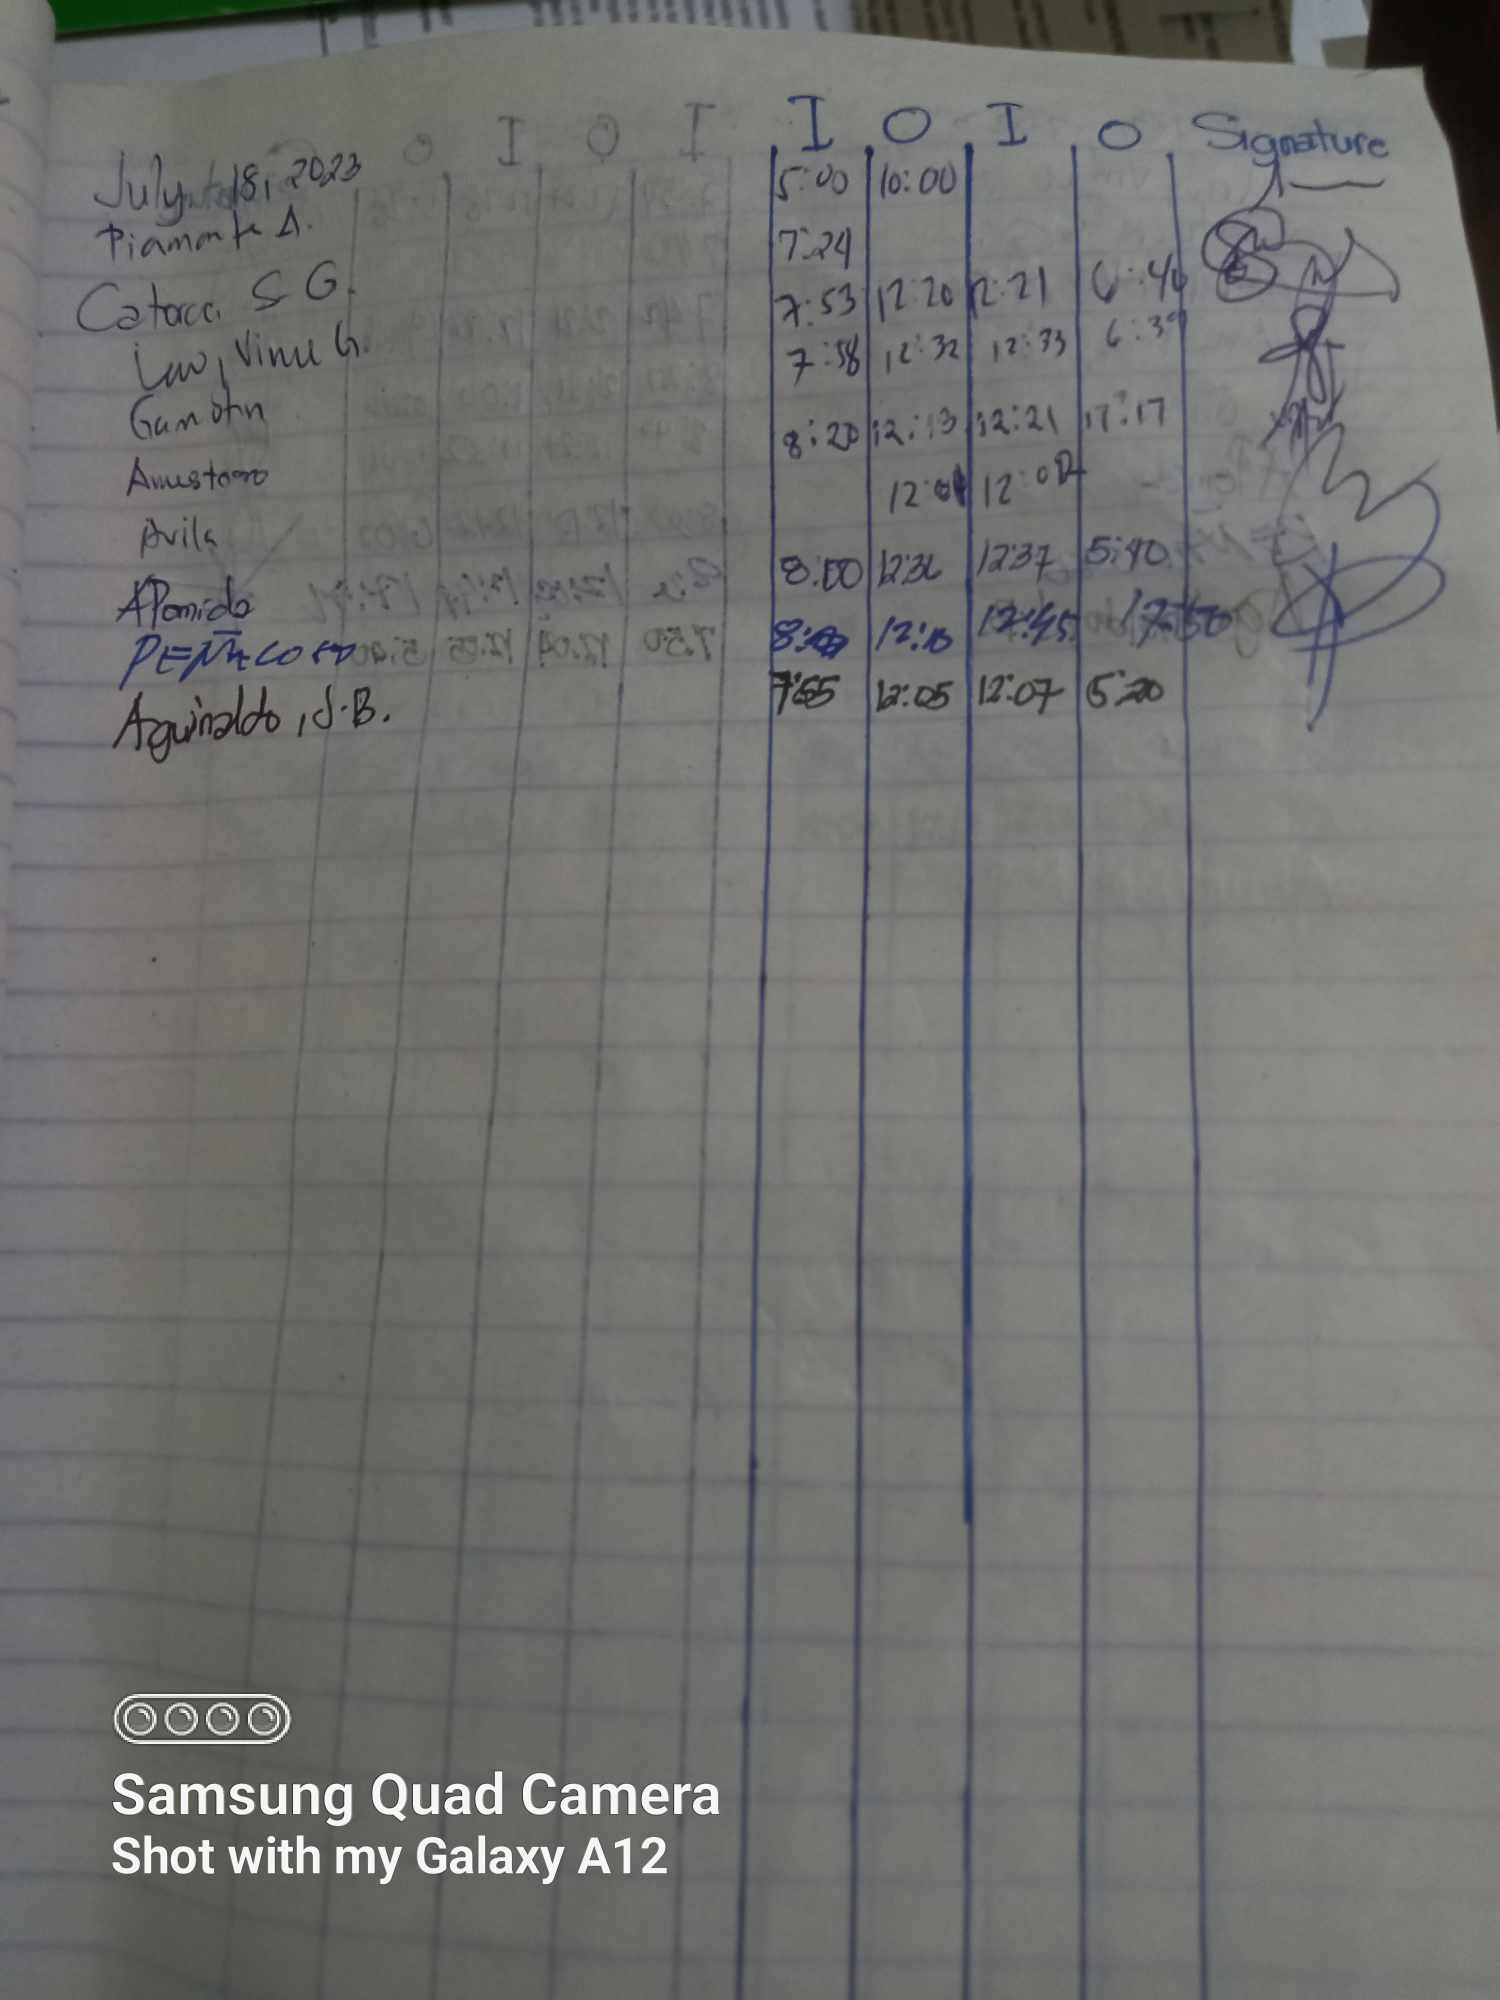 I O I O Signature
July 18, 2023
Piamonte A. 5:00 10:00
Catacca, S G. 7:24
Law, Vinu G. 7:53 12:20 12:21 6:46
Gamotin 7:58 12:32 12:33 6:39
8:20 12:13 12:21 17:17
Avila 12:01 12:02
Apomida 8:00 12:36 12:37 5:40
PEÑACOSO 8:00 12:10 12:45 17:50
Aguinaldo, J.B. 7:55 12:05 12:07 5:20
Samsung Quad Camera
Shot with my Galaxy A12